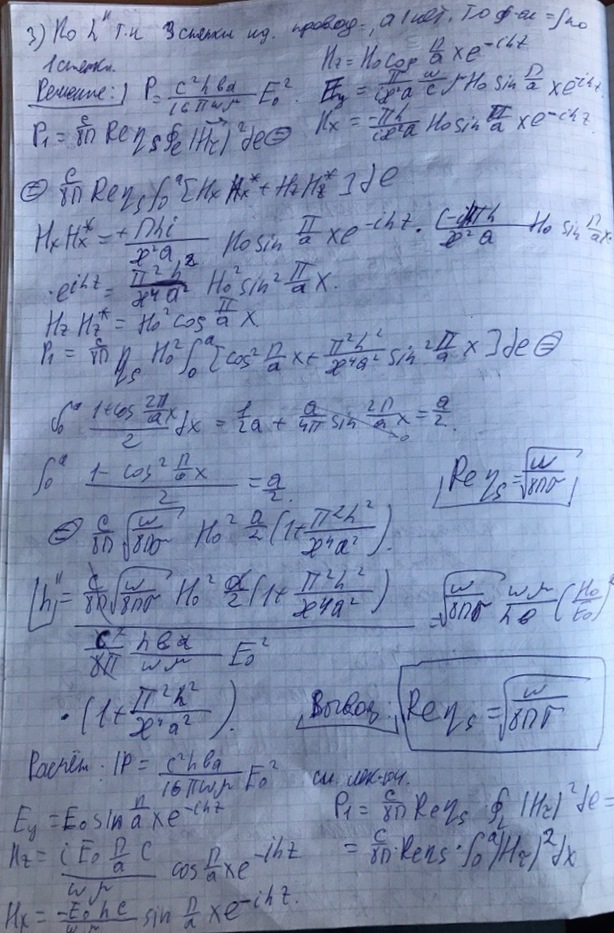 3) По h" т.к 3 стенки ид. провод., а 1 нет. То
1 стенки.
Решение: P = c²hba/16πωμ E₀².
H_z = H₀ cos π/a x e^{-ihz}
E_y = π/iæ²a ω/c μ H₀ sin π/a x e^{-ihz}
H_x = -πh/iæ²a H₀ sin π/a x e^{-ihz}
P₁ = c/8π Re η_s ∮_e |H_τ|² de ⊜
⊜ c/8π Re η_s ∫₀^a [H_x H_x* + H_z H_z*] de
H_x H_x* = +πhi/æ²a H₀ sin π/a x e^{-ihz} · (-iπh/æ²a H₀ sin π/a x
· e^{ihz} = π²h²/æ⁴a² H₀² sin² π/a x.
H_z H_z* = H₀² cos π/a x
P₁ = c/8π η_s H₀² ∫₀^a [cos² π/a x + π²h²/æ⁴a² sin² π/a x] de ⊜
∫₀^a (1+cos 2π/a x)/2 dx = 1/2 a + a/4π sin 2π/a x = a/2.
∫₀^a (1-cos² π/a x)/2 = a/2.
Re η_s = √(ω/8πσ)
⊜ c/8π √(ω/8πσ) H₀² a/2 (1+π²h²/æ⁴a²).
h" = (c/8π √(ω/8πσ) H₀² a/2 (1+π²h²/æ⁴a²))/(c²/8π hba/ωμ E₀²) = √(ω/8πσ) ωμ/hb (H₀/E₀)²
· (1+π²h²/æ⁴a²).
Вывод: Re η_s = √(ω/8πσ)
Расчёт: P = c²hba/16πωμ E₀² см. лек-ии.
E_y = E₀ sin π/a x e^{-ihz}
H_z = i E₀ π/a c/ωμ cos π/a x e^{-ihz}
H_x = -E₀hc/ωμ sin π/a x e^{-ihz}.
P₁ = c/8π Re η_s · ∮ |H_τ|² de =
= c/8π · Re η_s · ∫₀^a |H_τ|² dx